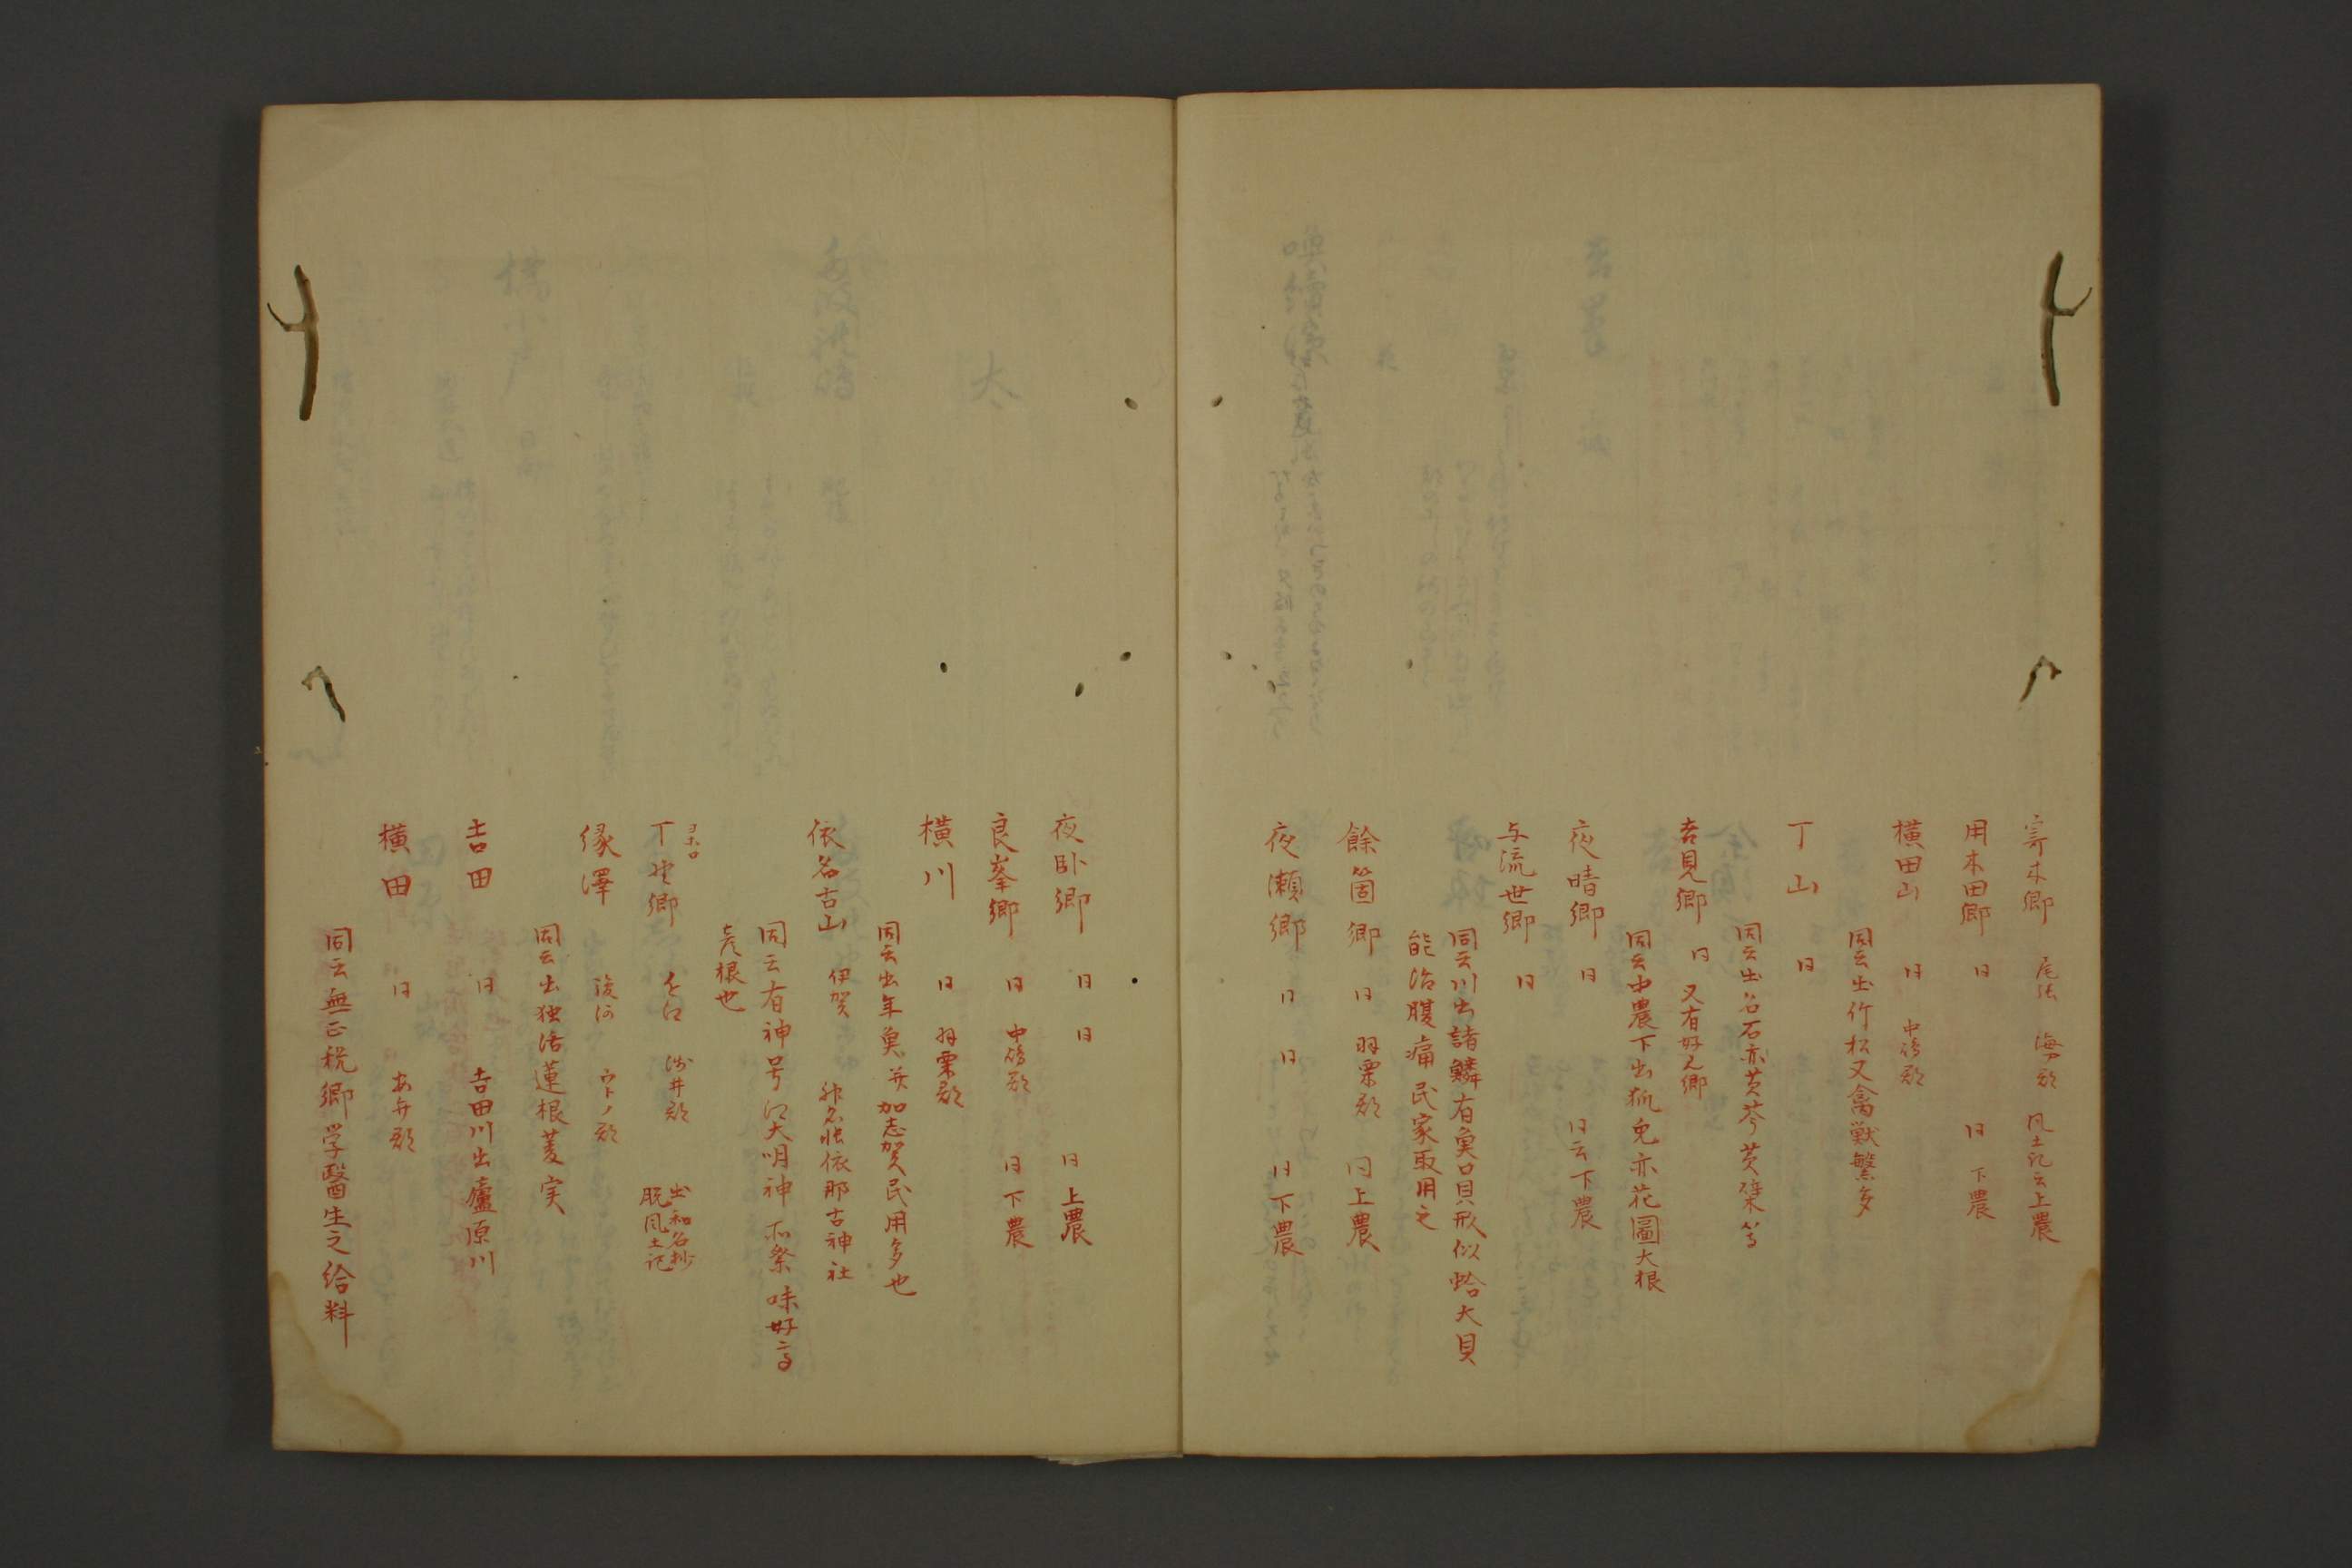 寄木郷 尾張 海ア郡 風土記云上農
用本田郷 日 日 下農
横田山 日 中嶋郡
同云出竹松又禽獣繁多
丁山 日
同云出名石亦黄芩黄檗等
吉見郷 日 又有好見郷
同云中農下出狐兔亦花圖大根
夜晴郷 日 日云下農
与流世郷 日
同云川出諸鱗有奠口貝形似蛤大貝
能治腹痛民家取用之
餘箇郷 日 羽栗郡 同上農
夜瀬郷 日 日 日下農
夜卧郷 日 日 日上農
良峯郷 日 中嶋郡 日下農
横川 日 羽栗郡
同云出年奠并加志賀民用多也
依名古山 伊賀 神名帳依那古神社
同云有神号 大明神 祭 味好
根也
ヨホロ
丁 郷 浅井郡 出和名抄
脱風土記
縁澤 駿河 ウトノ郡
同云出独活蓮根菱実
吉田 日 吉田川出廬原川
横田 日 あ弁郡
同云無正税郷学醫生之給料